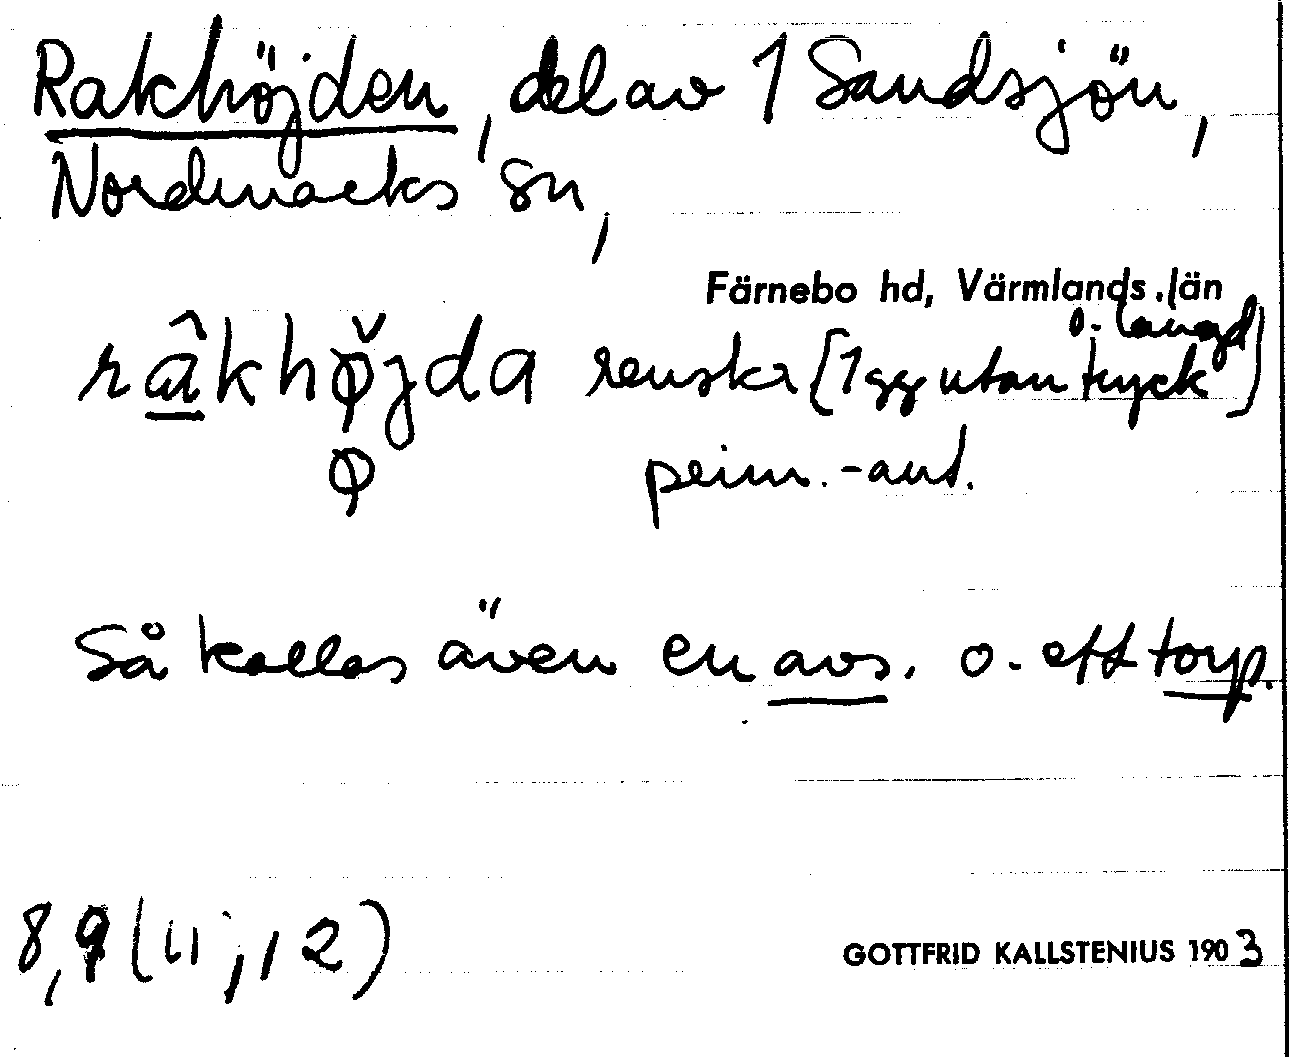 Rakhöjden, del av 1 Sandsjön,
Nordmarks sn,
Färnebo hd, Värmlands län
râkhø̌jda renskr [1 gg utan tryck o. längd]
ø perm. -ant.
Så kallas även en avs. o. ett torp.
8,9 (11; 12)
GOTTFRID KALLSTENIUS 1903